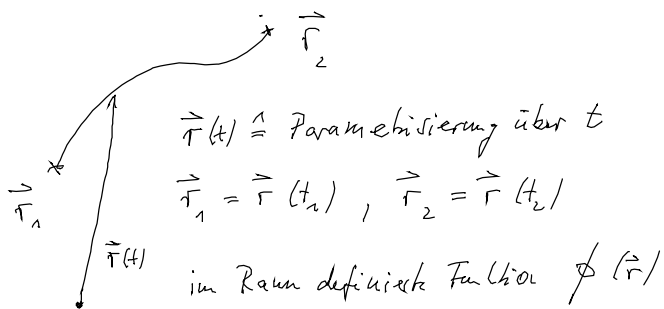 r⃗₂
r⃗(t) ≙ Parametrisierung über t
r⃗₁
r⃗₁ = r⃗(t₁) , r⃗₂ = r⃗(t₂)
r⃗(t)
im Raum definierte Funktion ϕ(r⃗)